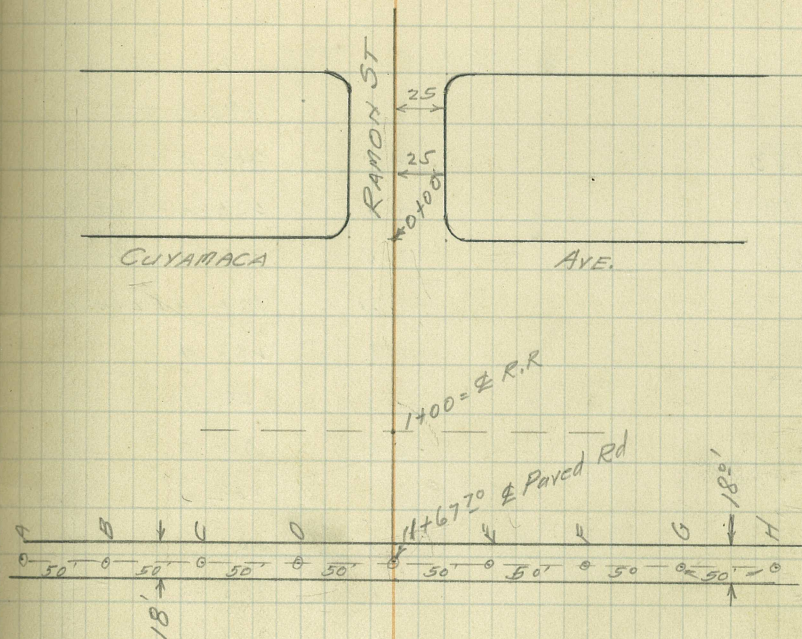 RAMON ST
25
25
0+00
CUYAMACA AVE.
1+00 = ℄ R.R
1+67.70 ℄ Paved Rd
18.0'
A B C D E F G H
50' 50' 50' 50' 50' 50' 50 50'
18'